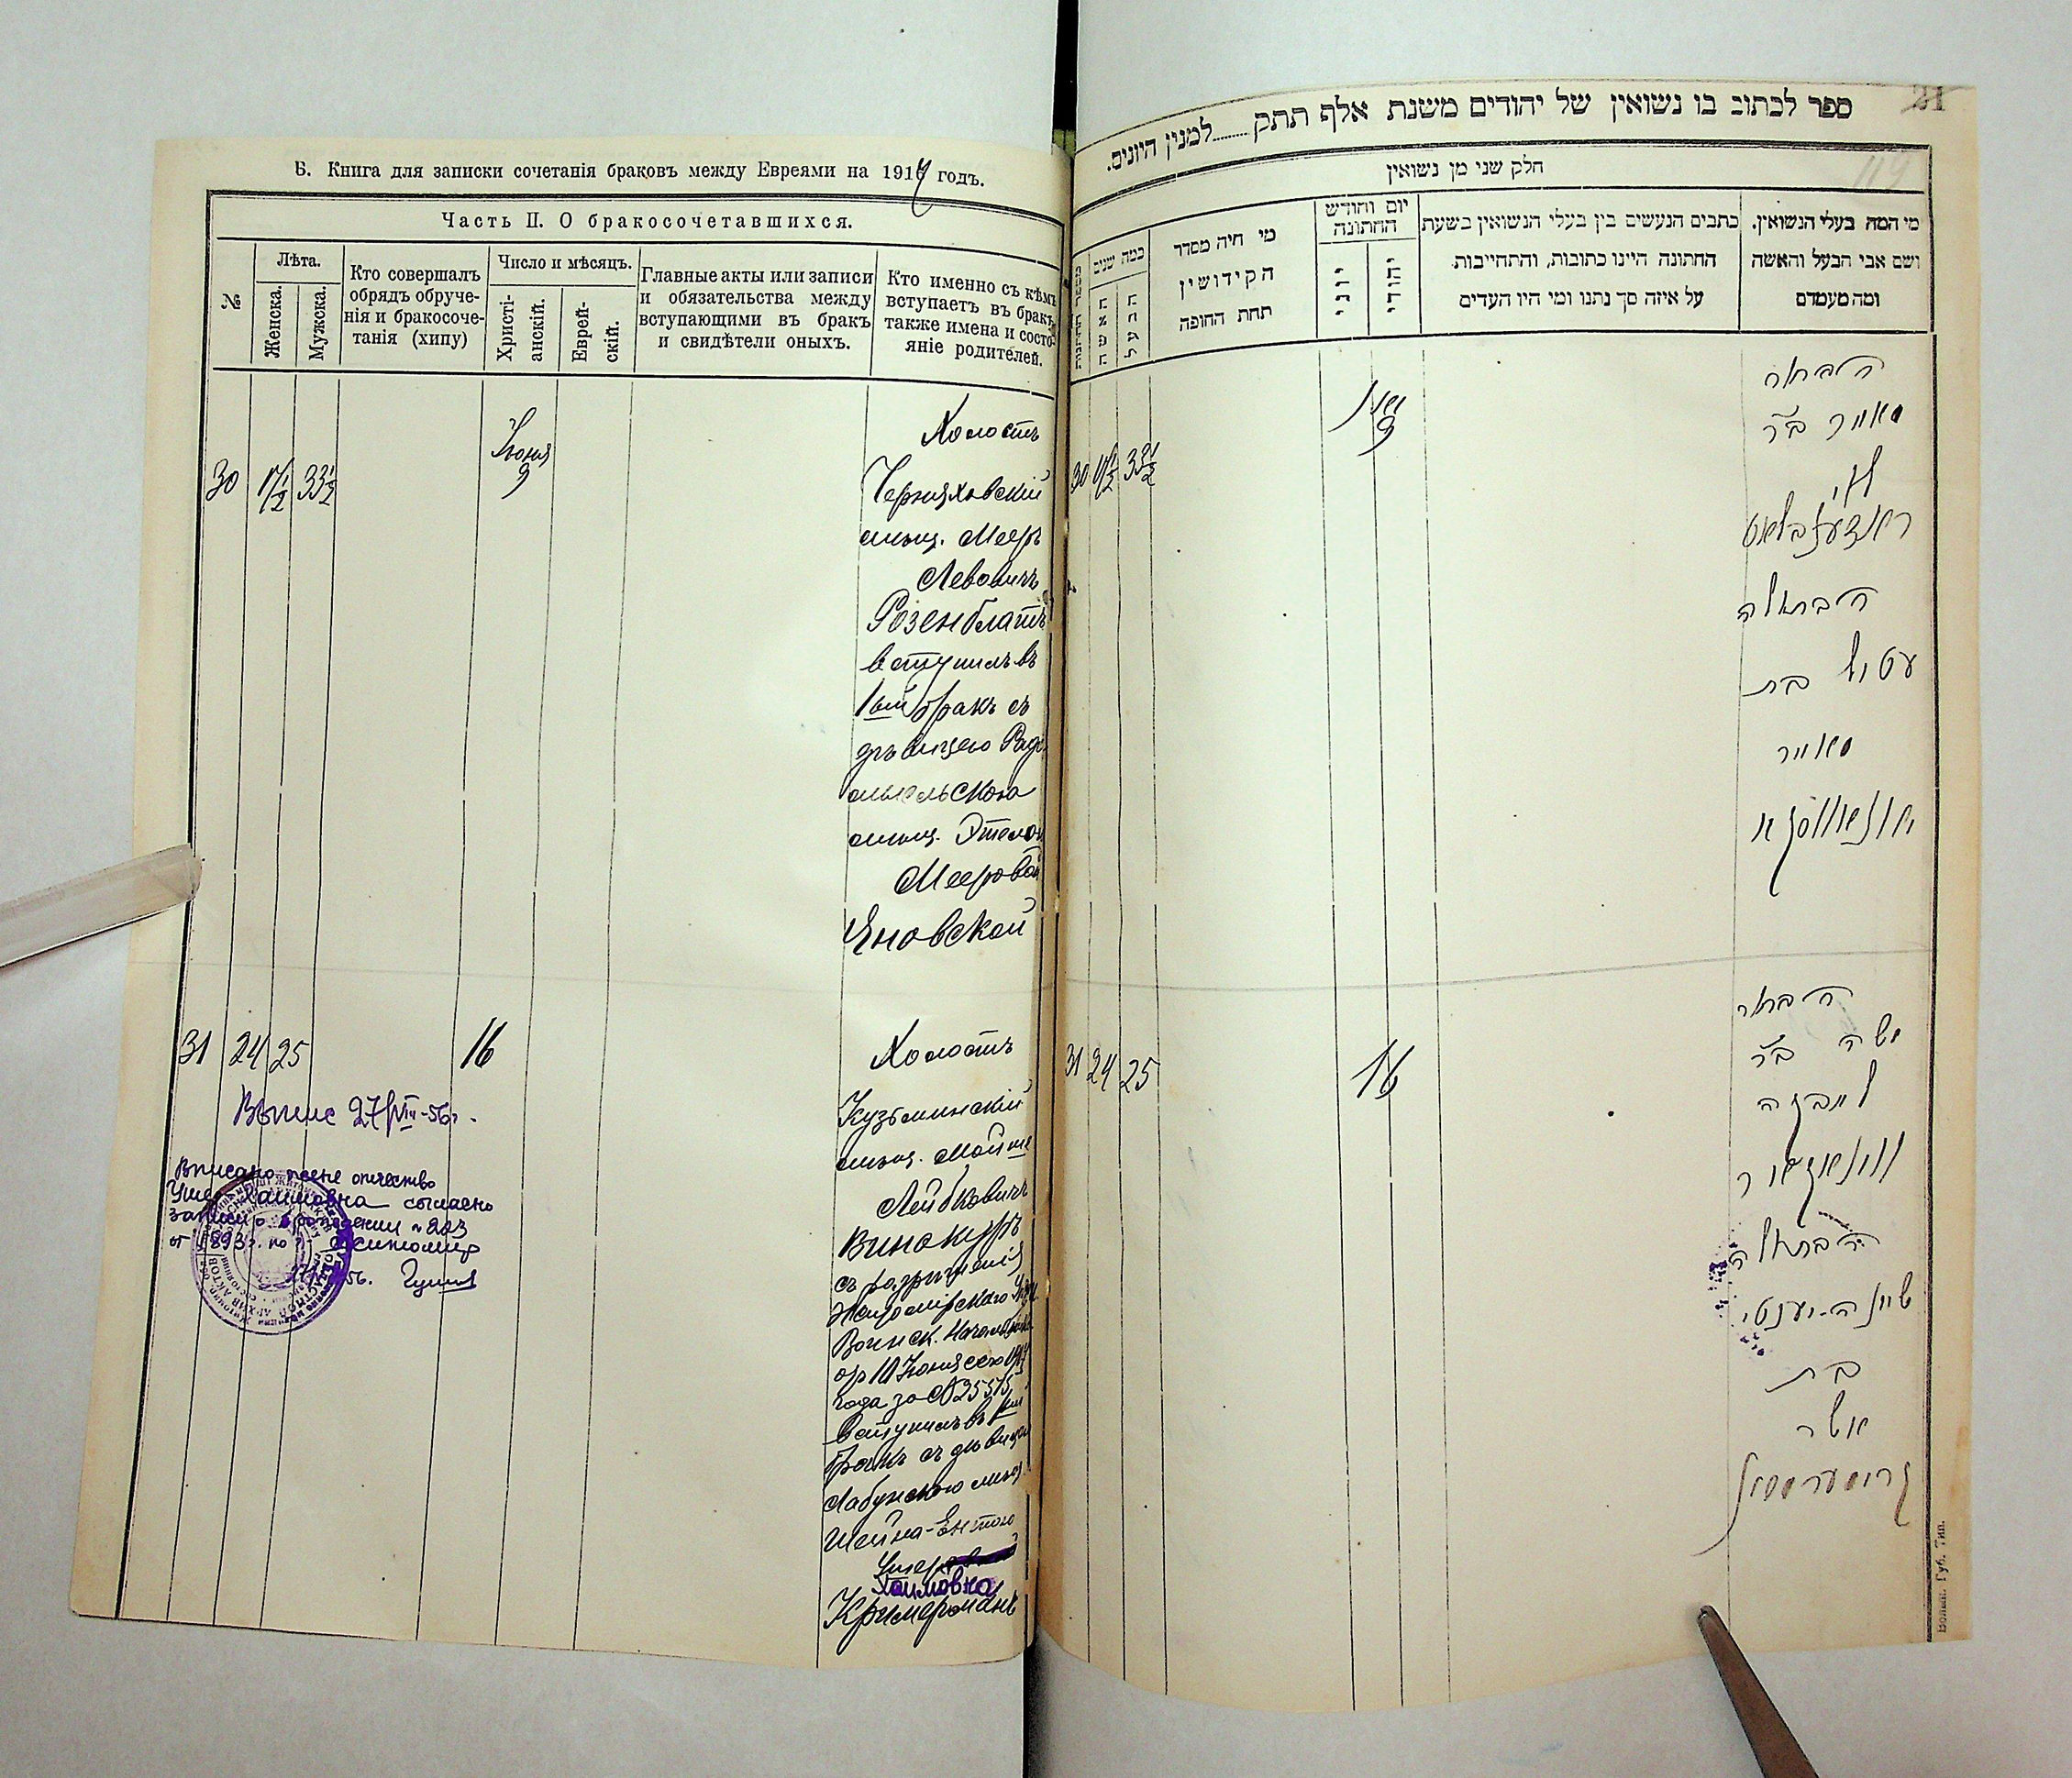 Б. Книга для записки сочетанія браковъ между Евреями на 1917 годъ.
Часть II. О бракосочетавшихся.
№
Лѣта.
Женска.
Мужска.
Кто совершалъ
обрядъ обруче-
нія и бракосоче-
танія (хипу)
Число и мѣсяцъ.
Христі-
анскій.
Еврей-
скій.
Главные акты или записи
и обязательства между
вступающими въ бракъ
и свидѣтели оныхъ.
Кто именно съ кѣмъ
вступаетъ въ бракъ,
также имена и состо-
яніе родителей.
30
33½
Іюня
9
Холостъ
Черняховскій
мѣщ. Мееръ
Левовичъ
Розенблатъ
вступилъ въ
1ый бракъ съ
дѣвицею Радо
мысльскою
мѣщ. Этелью
Мееровой
Яновской
31 24 25
16
Холостъ
Кузьминскій
мѣщ. Мойше
Лейбковичъ
Винокуръ
съ разрѣшенія
Житомірскаго
Воинск. Начальника
от 10 Іюня сего 1917
года за №
вступилъ въ 1ый
бракъ съ дѣвицею
Лабунскою мѣщ.
Шейна-Ентою
Ушер
Хаимовна
Кримерманъ
Выпис 27/VIII-56г.
Вписано отчество
Хаимовна согласно
записи о рождении № 223
от 1893 г. по г. Житомир
56.
ספר לכתוב בו נשואין של יהודים משנת אלף תתק......למנין היונים.
21
119
חלק שני מן נשואין
מי המה בעלי הנשואין.
ושם אבי הבעל והאשה
ומה מעמדם
כתבים הנעשים בין בעלי הנשואין בשעת
החתונה היינו כתובות, והתחייבות
על איזה סך נתנו ומי היו העדים
יום וחודש
החתונה
יהודי
יוני
מי היה מסדר
הקידושין
תחת החופה
כמה שנים
הבעל
האשה
מספר החתונות
30
33½
9
הבחור
מאיר ב״ר
לוי
ראזענבלאט
הבתולה
עטיל בת
מאיר
יאנאווסקא
31 24 25
16
הבחור
משה ב״ר
לייבקה
ווינאקור
הבתולה
שיינה-יענטי
בת
אשר
קרימערמאן
Волын. Губ. Тип.